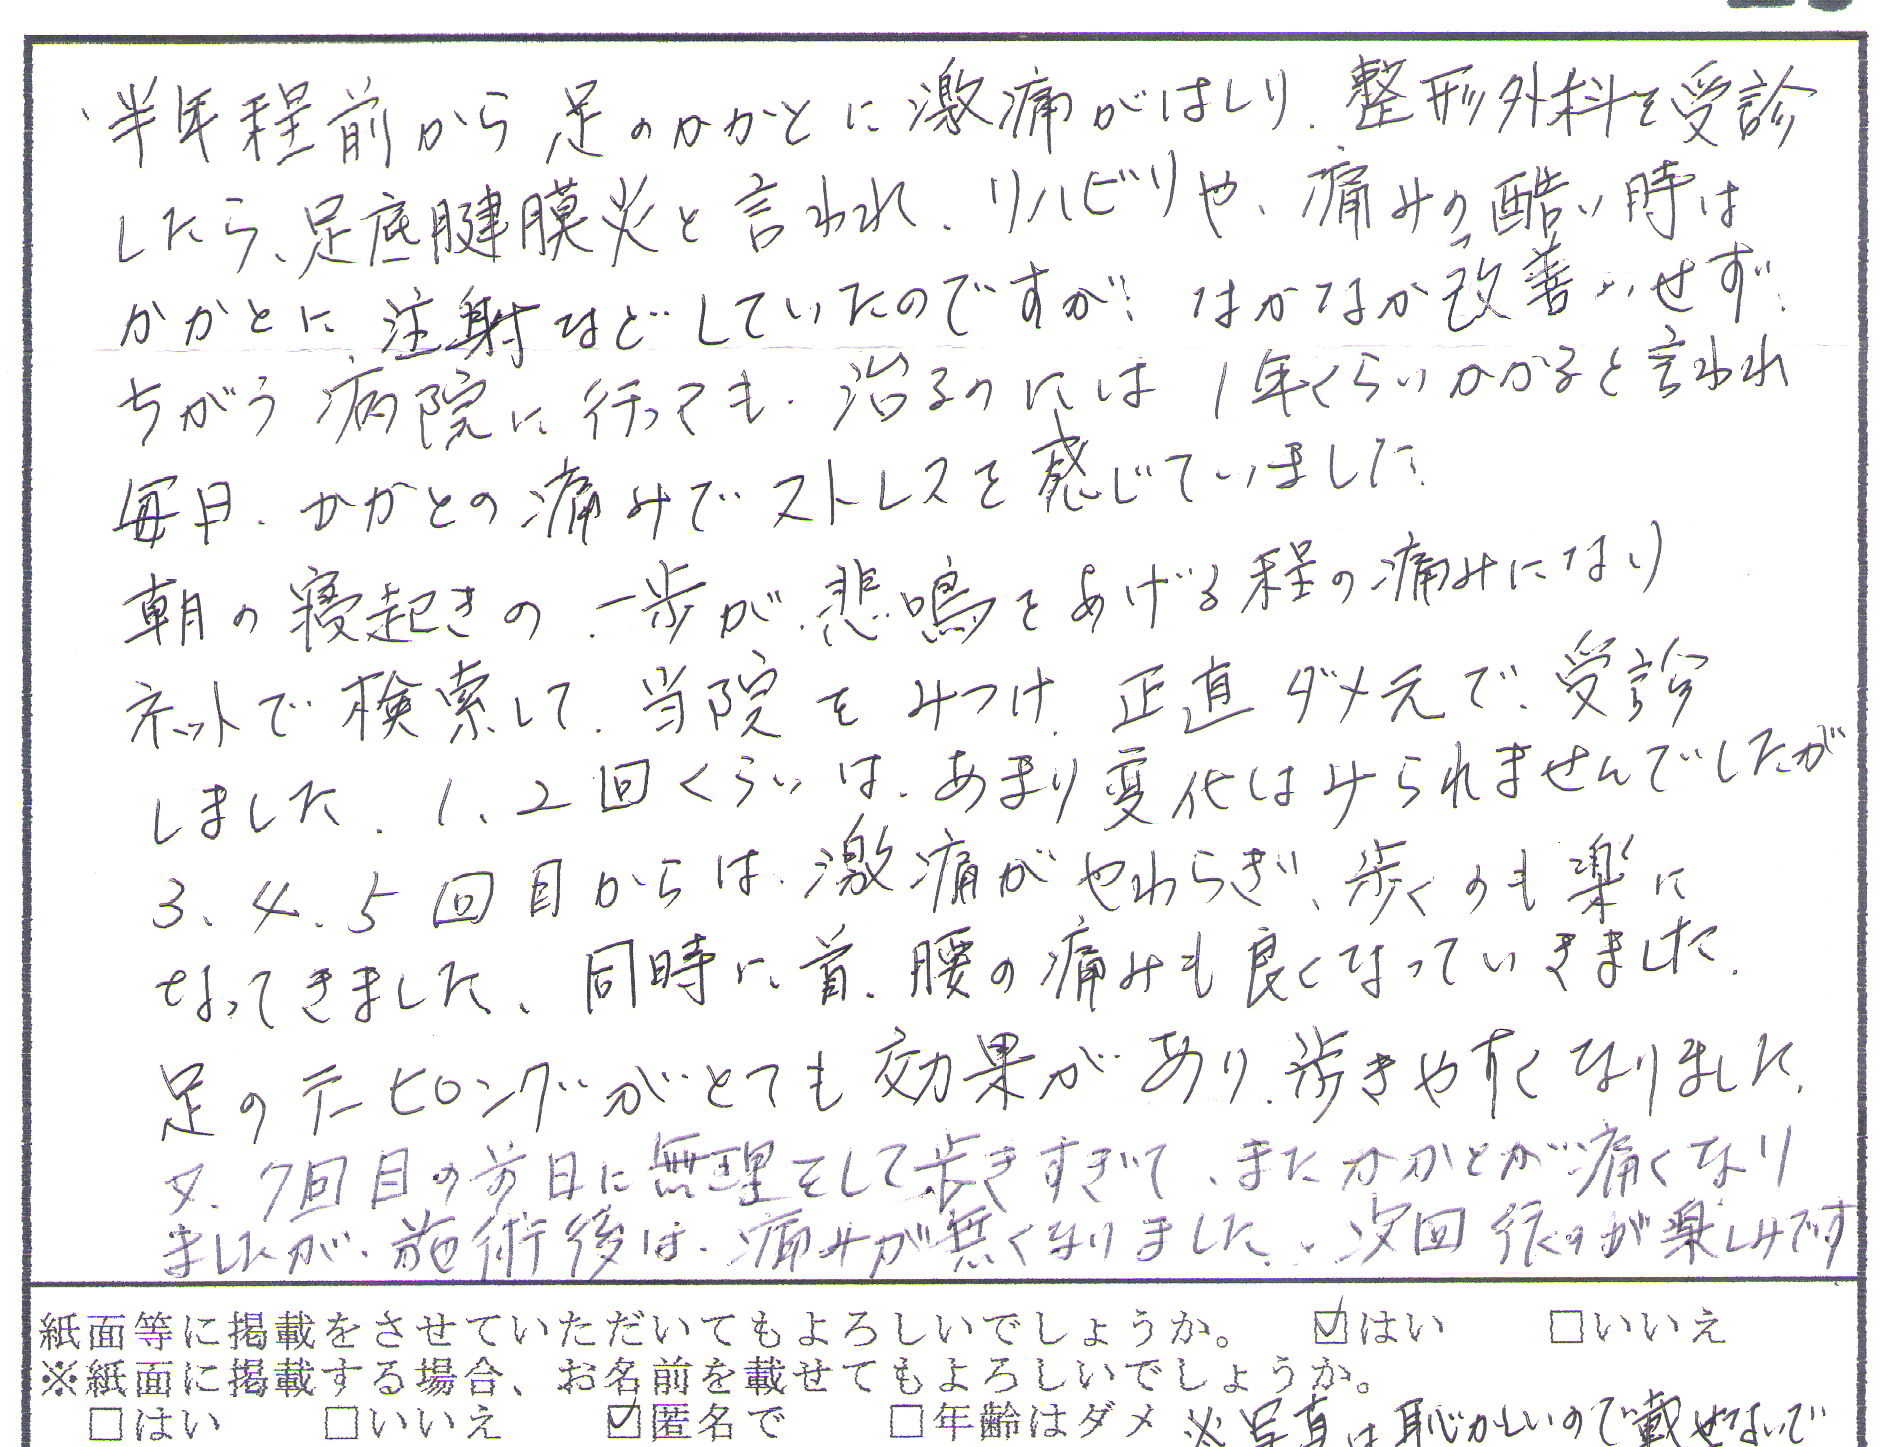 半年程前から足のかかとに激痛がはしり、整形外科を受診
したら、足底腱膜炎と言われ、リハビリや、痛みの酷い時は
かかとに注射などしていたのですが、なかなか改善せず、
ちがう病院に行っても、治るのには1年くらいかかると言われ
毎日、かかとの痛みでストレスを感じていました。
朝の寝起きの一歩が、悲鳴をあげる程の痛みになり
ネットで検索して、当院をみつけ、正直ダメ元で、受診
しました。1、2回くらいは、あまり変化はみられませんでしたが
3、4、5回目からは、激痛がやわらぎ、歩くのも楽に
なってきました、同時に首、腰の痛みも良くなっていきました。
足のテーピングがとても効果があり、歩きやすくなりました。
又、7回目の前日に無理をして歩きすぎて、またかかとが痛くなり
ましたが、施術後は、痛みが無くなりました。次回行くのが楽しみです
紙面等に掲載をさせていただいてもよろしいでしょうか。 ☑はい □いいえ
※紙面に掲載する場合、お名前を載せてもよろしいでしょうか。
□はい □いいえ ☑匿名で □年齢はダメ ※写真は恥かしいので載せないで